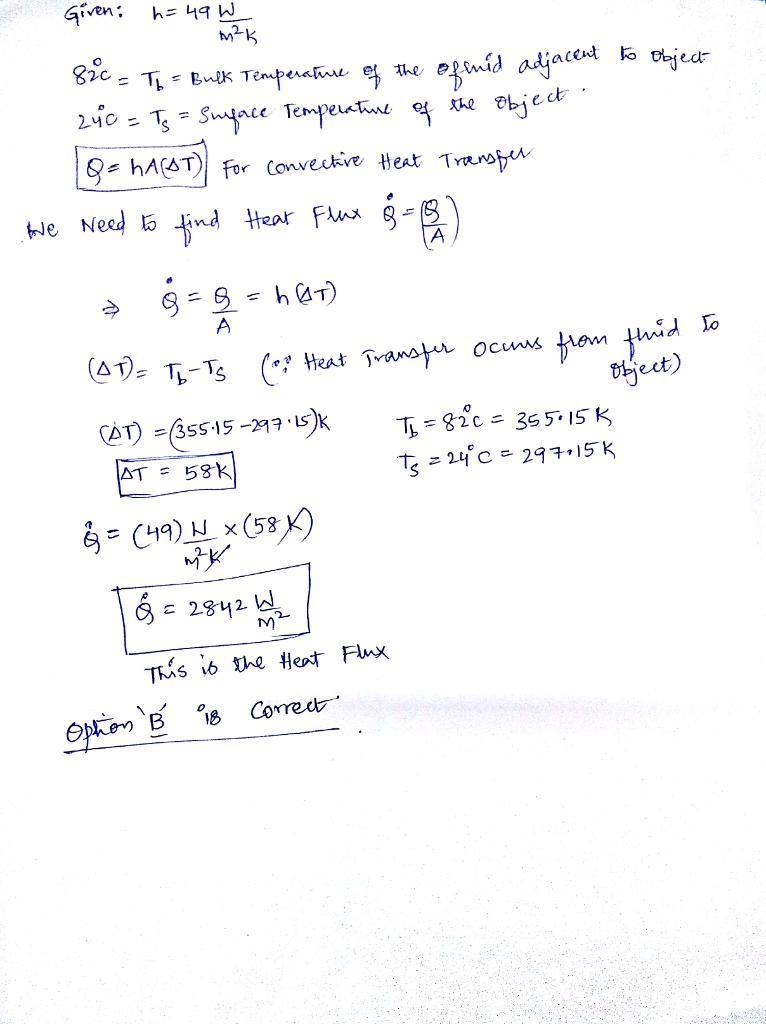 Given: h = 49 W/m²K
82°C = T_b = Bulk Temperature of the offluid adjacent to object
24°C = T_s = Surface Temperature of the object.
Q = hA(ΔT) For convective Heat Transfer
We Need to find Heat Flux Q̇ = (Q/A)
⇒ Q̇ = Q/A = h(ΔT)
(ΔT) = T_b - T_s (∵ Heat Transfer occurs from fluid to object)
(ΔT) = (355.15 - 297.15)K T_b = 82°C = 355.15 K
ΔT = 58K T_s = 24°C = 297.15K
Q̇ = (49) W/m²K × (58 K)
Q̇ = 2842 W/m²
This is the Heat Flux
Option 'B' is correct.